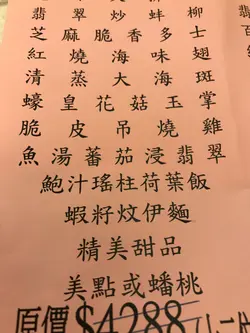 翡翠炒蚌柳
芝麻脆香多士
紅燒海味翅
清蒸大海斑
蠔皇花菇玉掌
脆皮吊燒雞
魚湯蕃茄浸翡翠
鮑汁瑤柱荷葉飯
蝦籽炆伊麵
精美甜品
美點或蟠桃
原價$4288